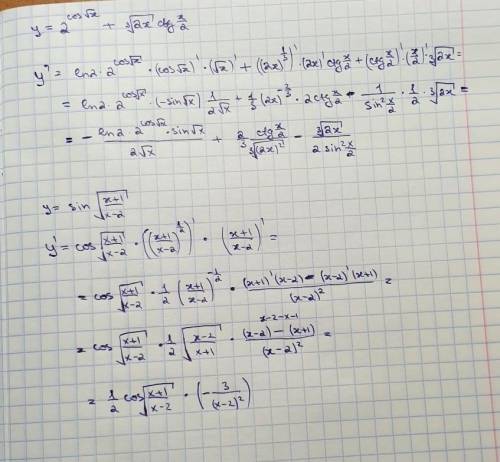 y = 2^(cos√x) + ∛(2x) ctg x/2
y' = ln2 · 2^(cos√x) · (cos√x)' · (√x)' + ((2x)^(1/3))' · (2x)' ctg x/2 + (ctg x/2)' · (x/2)' · ∛(2x) =
= ln2 · 2^(cos√x) · (-sin√x) 1/(2√x) + 1/3 (2x)^(-2/3) · 2ctg x/2 - 1/(sin² x/2) · 1/2 · ∛(2x) =
= - (ln2 · 2^(cos√x) · sin√x)/(2√x) + 2/3 (ctg x/2)/(∛(2x)²) - ∛(2x)/(2 sin² x/2)
y = sin √((x+1)/(x-2))
y' = cos √((x+1)/(x-2)) · (((x+1)/(x-2))^(1/2))' · ((x+1)/(x-2))' =
= cos √((x+1)/(x-2)) · 1/2 ((x+1)/(x-2))^(-1/2) · ((x+1)'(x-2) - (x-2)'(x+1))/((x-2)²) =
x-2-x-1
= cos √((x+1)/(x-2)) · 1/2 √((x-2)/(x+1)) · ((x-2) - (x+1))/((x-2)²) =
= 1/2 cos √((x+1)/(x-2)) · (- 3/((x-2)²))